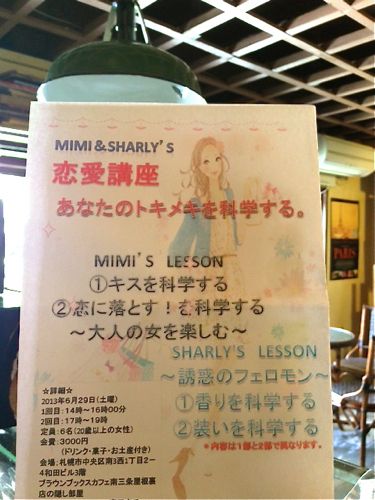 MIMI&SHARLY'S
恋愛講座
あなたのトキメキを科学する。
MIMI'S LESSON
①キスを科学する
②恋に落とす！を科学する
～大人の女を楽しむ～
SHARLY'S LESSON
～誘惑のフェロモン～
①香りを科学する
②装いを科学する
*内容は1部と2部で異なります。
☆詳細☆
2013年6月29日(土曜)
1回目：14時～16時00分
2回目：17時～19時
定員：6名(20歳以上の女性)
会費：3000円
(ドリンク・菓子・お土産付き)
会場：札幌市中央区南3西1丁目2－
4和田ビル3階
ブラウンブックスカフェ南三条屋根裏
店の隠し部屋
PARIS